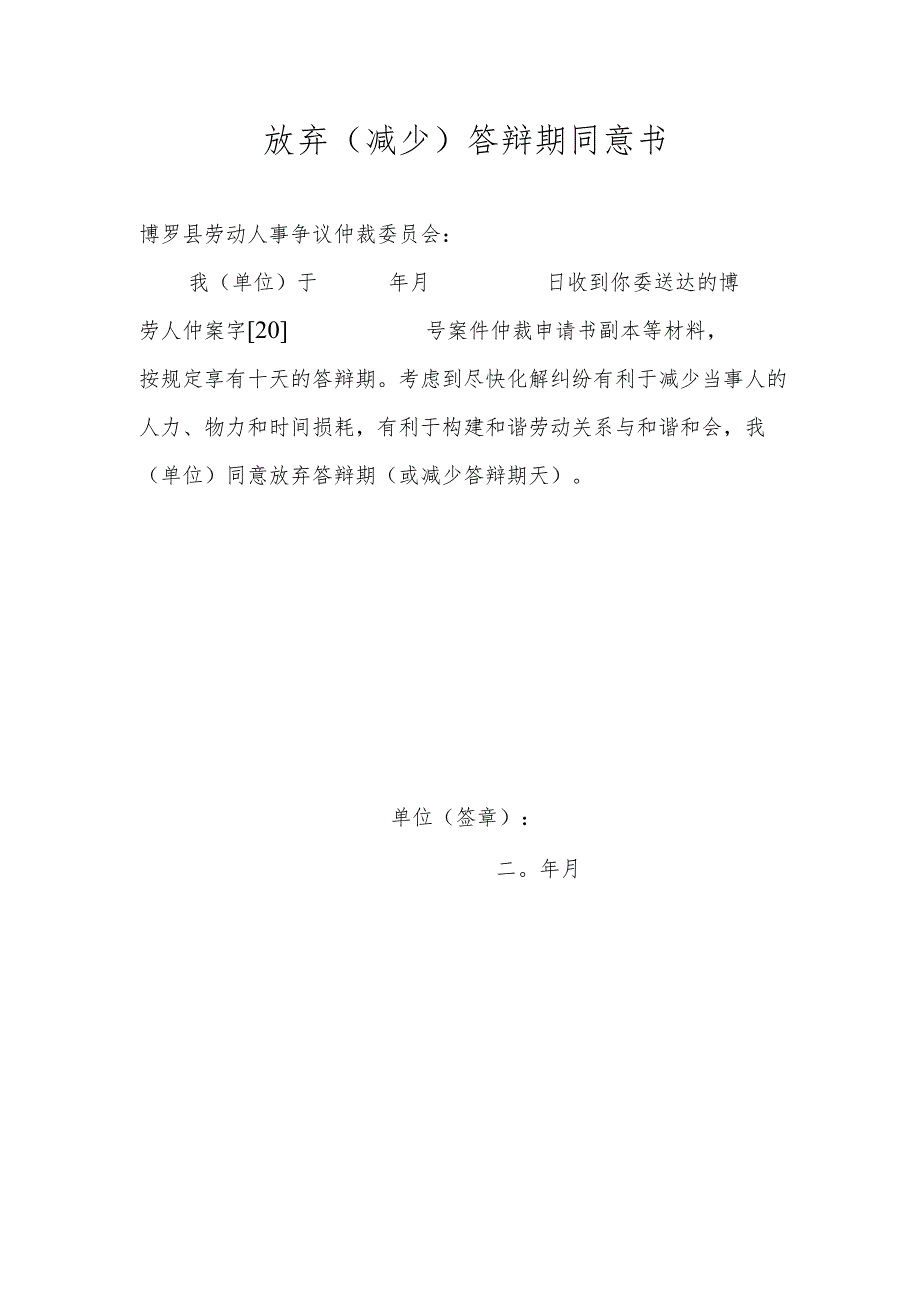 放弃（减少）答辩期同意书
博罗县劳动人事争议仲裁委员会：
我（单位）于 年月 日收到你委送达的博
劳人仲案字[20] 号案件仲裁申请书副本等材料，
按规定享有十天的答辩期。考虑到尽快化解纠纷有利于减少当事人的
人力、物力和时间损耗，有利于构建和谐劳动关系与和谐和会，我
（单位）同意放弃答辩期（或减少答辩期天）。
单位（签章）：
二。年月